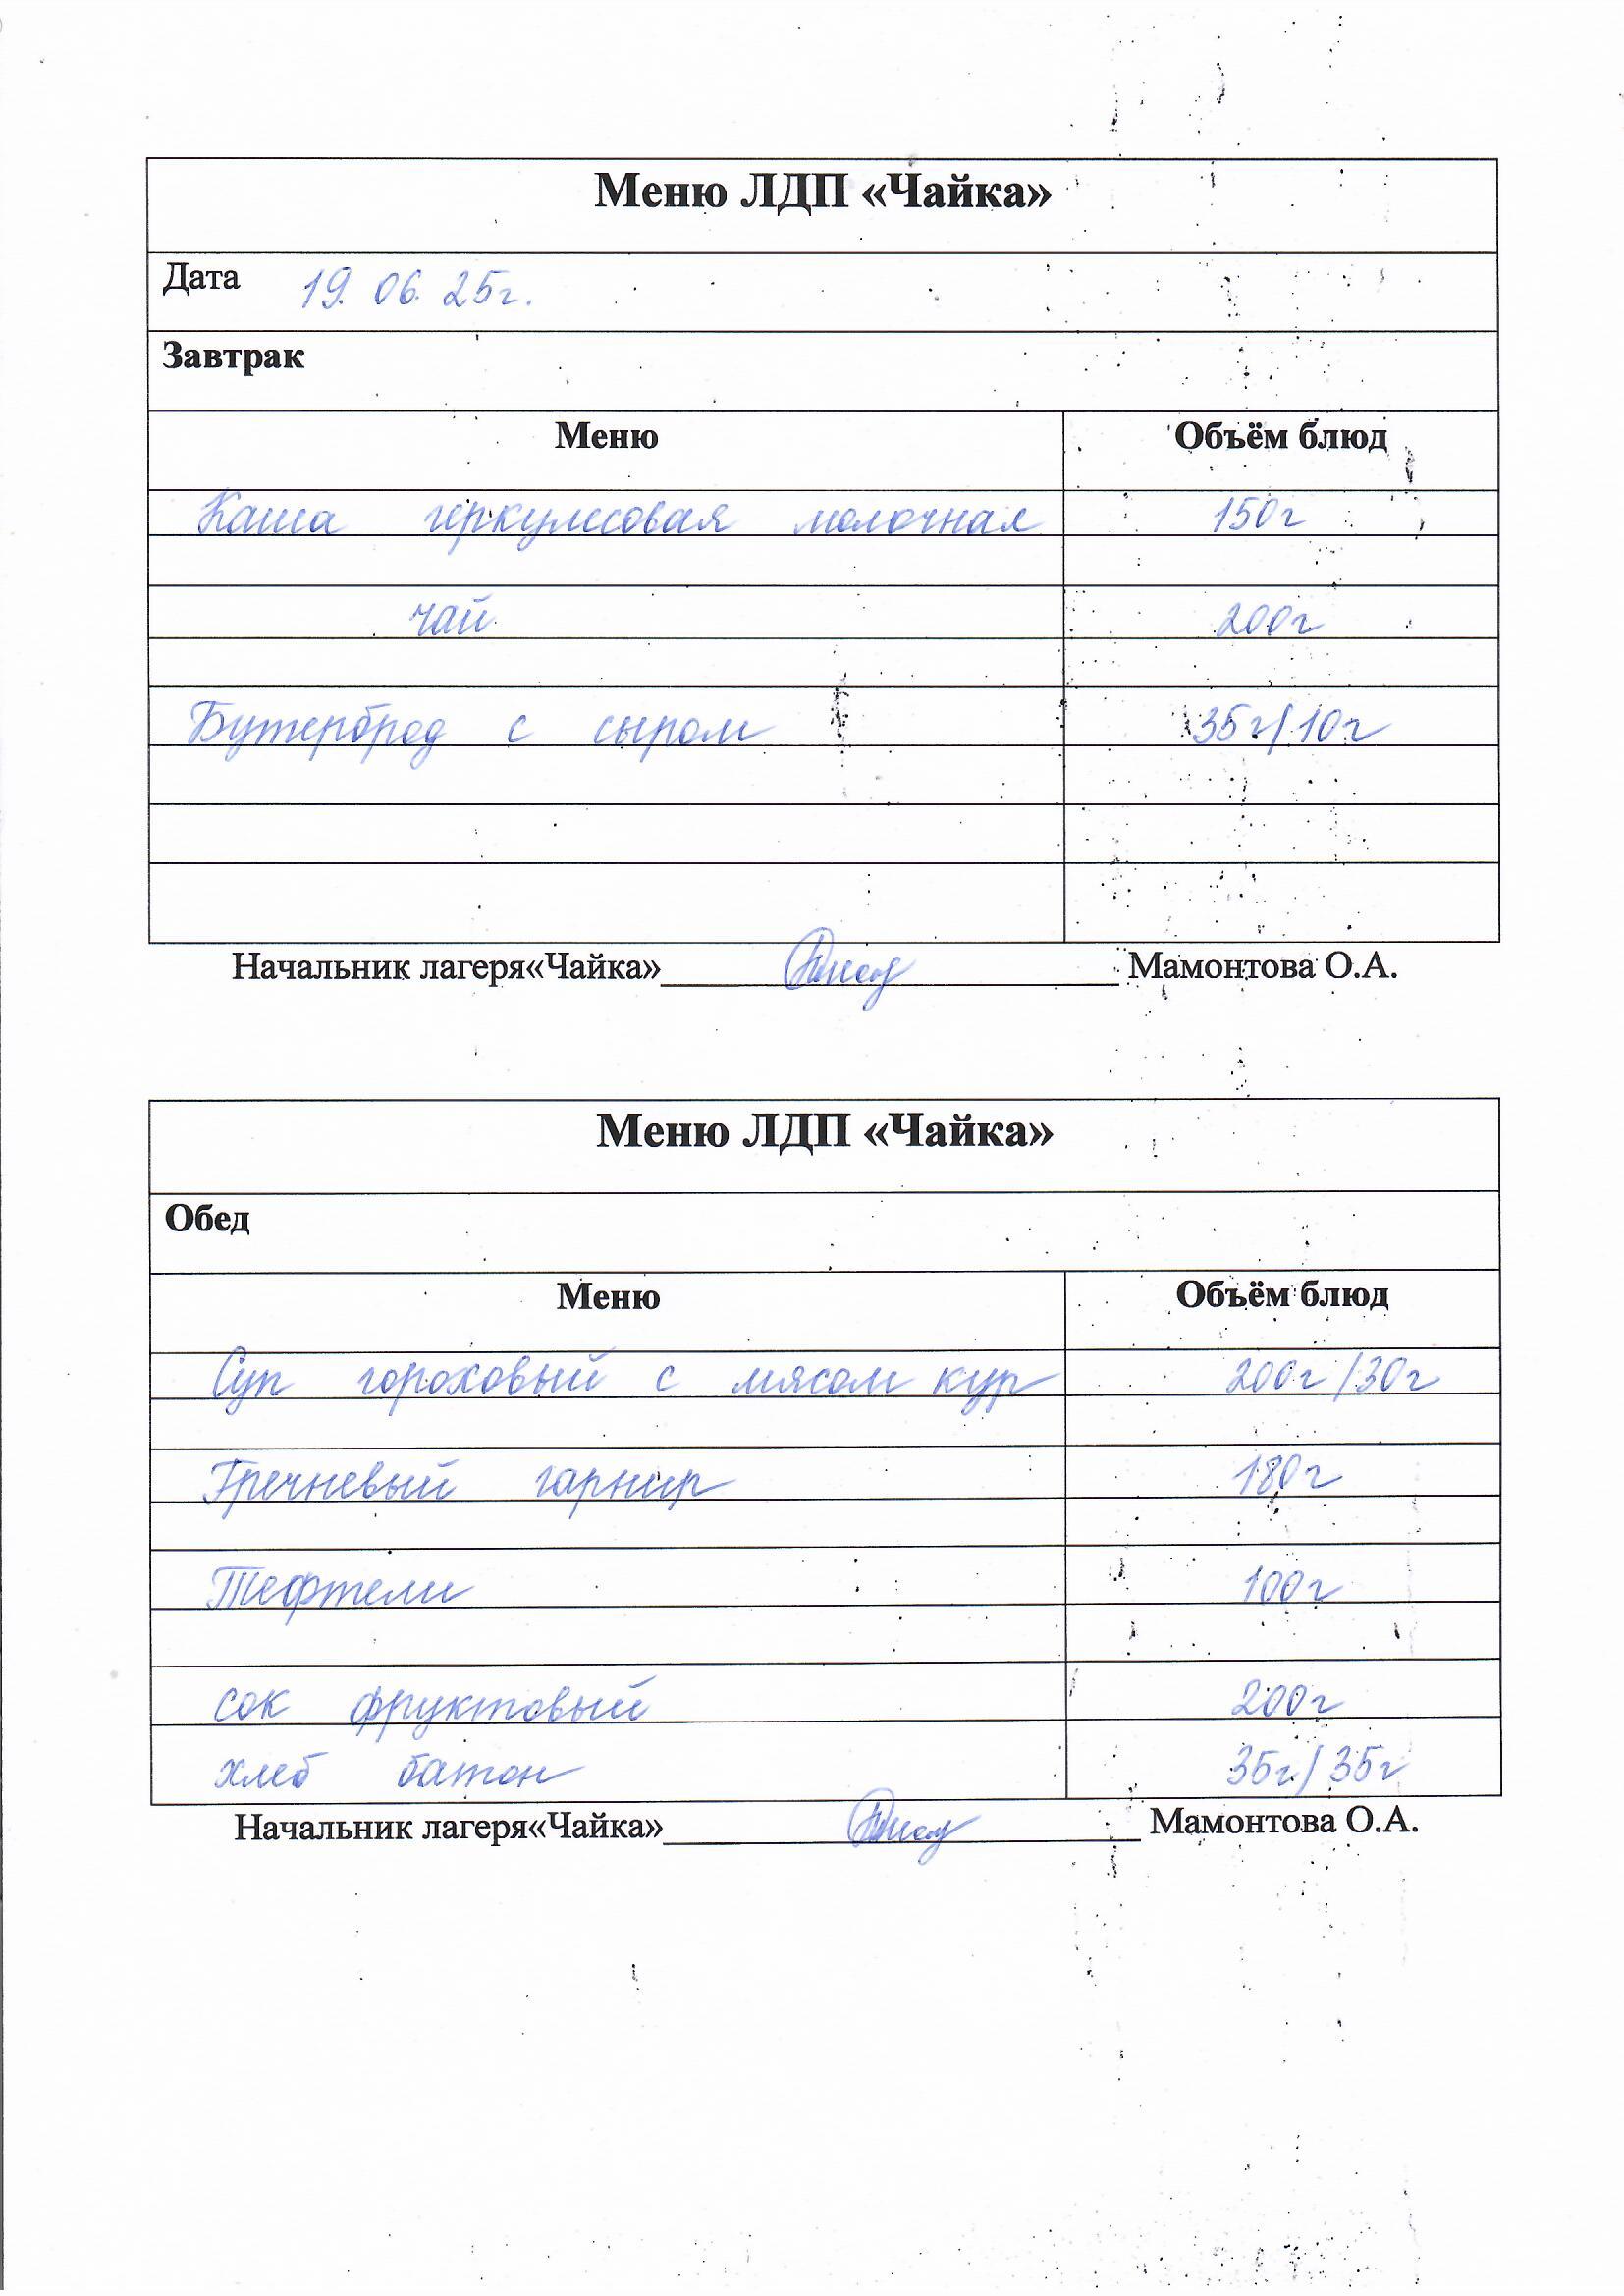 Меню ЛДП «Чайка»
Дата 19. 06. 25г.
Завтрак
Меню Объём блюд
Каша геркулесовая молочная 150г
чай 200г
Бутерброд с сыром 35г/10г
Начальник лагеря«Чайка» Мамонтова О.А.
Меню ЛДП «Чайка»
Обед
Меню Объём блюд
Суп гороховый с мясом кур 200г/30г
Гречневый гарнир 180г
Тефтели 100г
сок фруктовый 200г
хлеб батон 35г/35г
Начальник лагеря«Чайка» Мамонтова О.А.